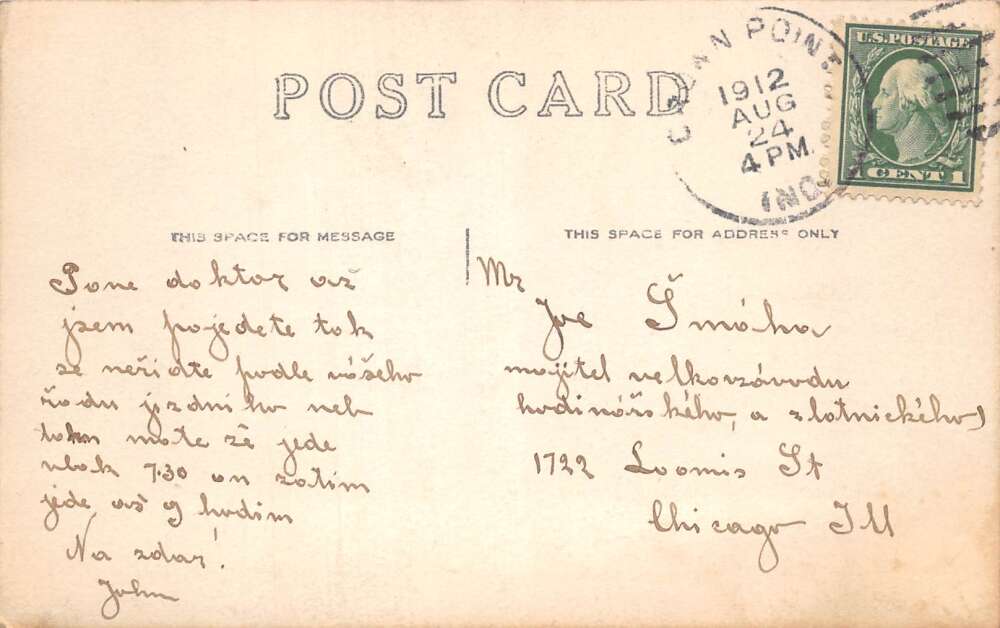 POST CARD
CROWN POINT
1912
AUG
24
4 PM.
IND
U.S. POSTAGE
1 CENT 1
THIS SPACE FOR MESSAGE
THIS SPACE FOR ADDRESS ONLY
Pane doktor až
jsem pojedete tak
se neřidte podle vášeho
řadu jizdního neb
tohn mate zě jede
vlak 7.30 on zatim
jede až 9 hodim
Na zdar!
John
Mr
Joe Šmáha
majitel velkozávodu
hodinářského, a zlotnického)
1722 Loomis St
Chicago Ill